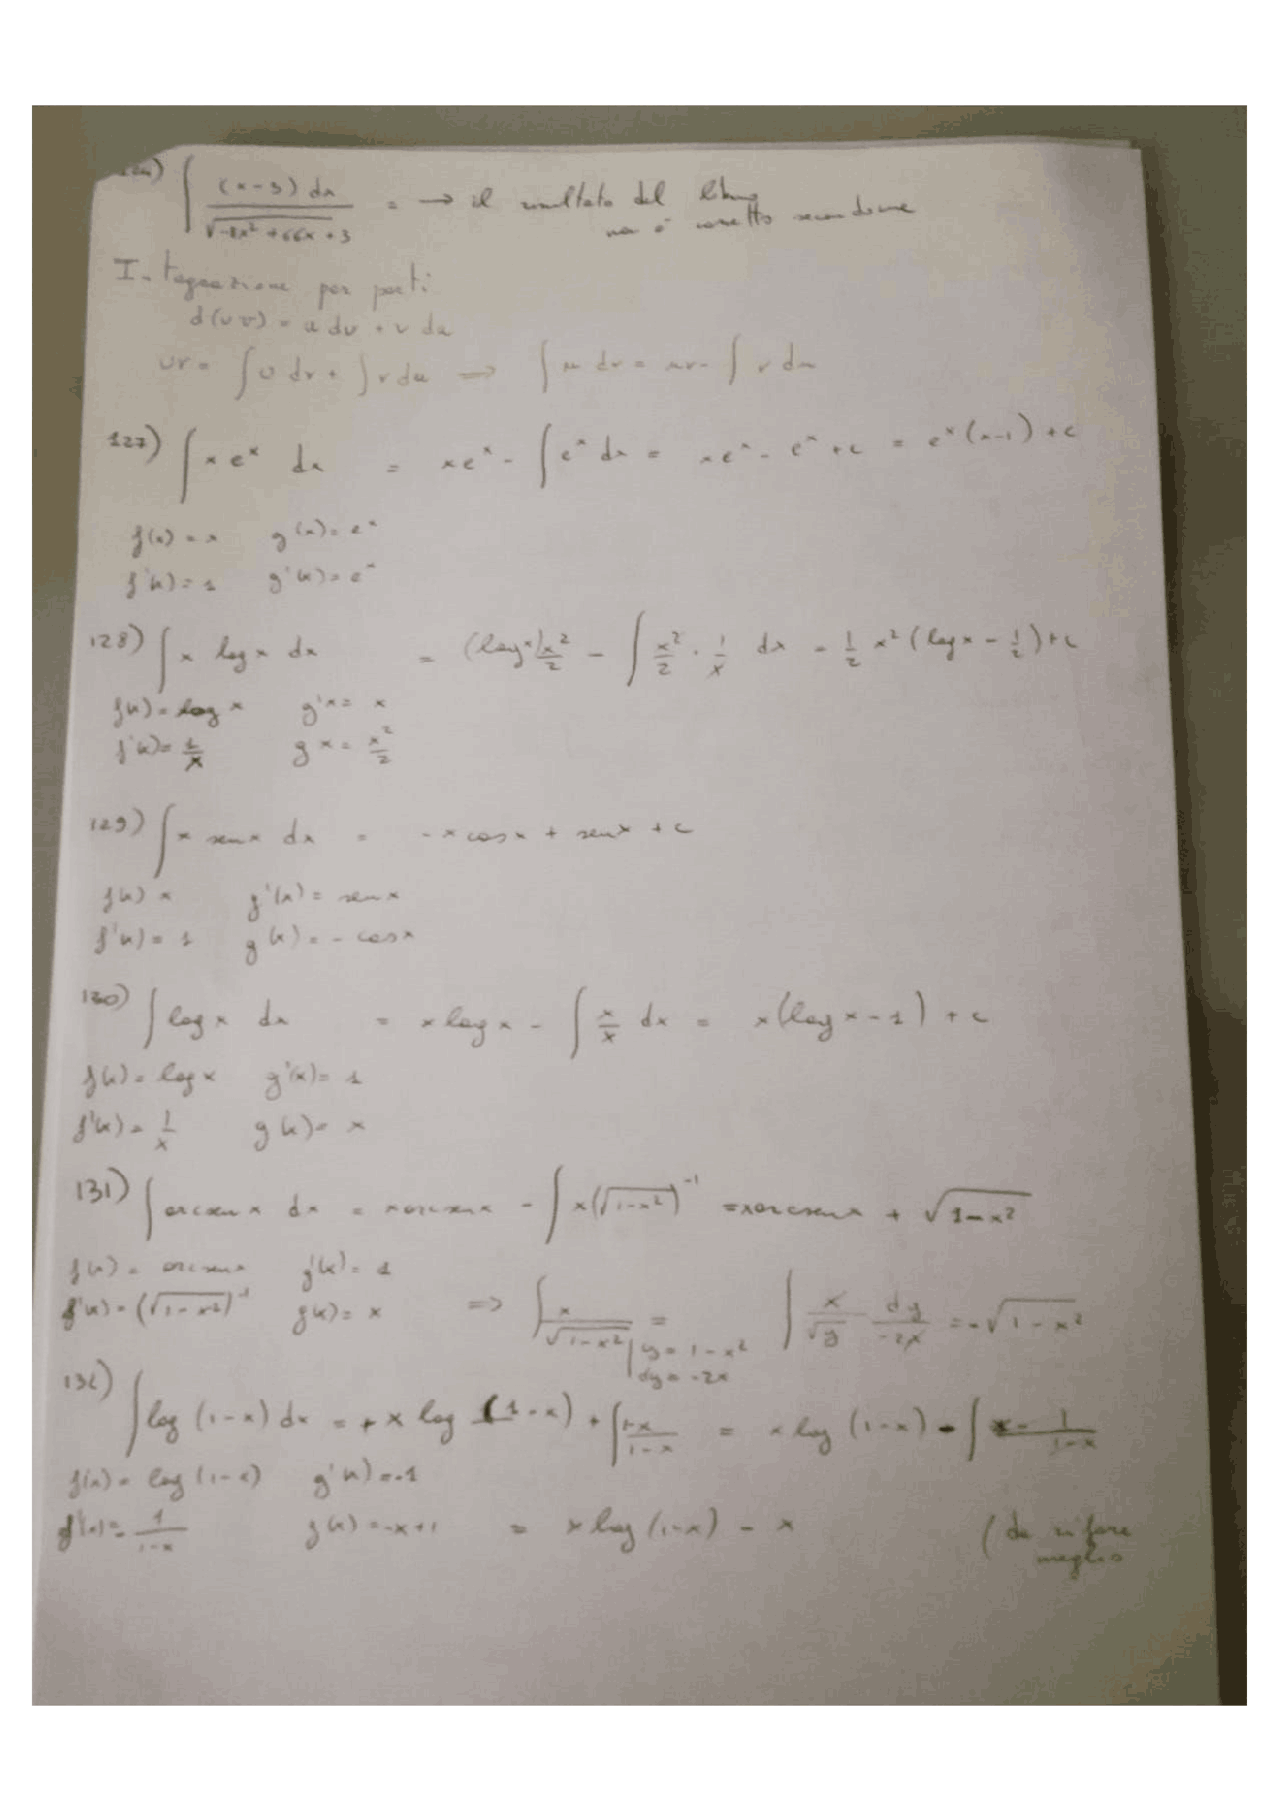 ∫ (x-3) dx / √(-8x² + 66x + 3) = → il risultato del libro
non è corretto secondo me
Integrazione per parti
d(uv) = u dv + v du
uv = ∫u dv + ∫v du ⇒ ∫u dv = uv - ∫v du
127) ∫ x eˣ dx = xeˣ - ∫eˣ dx = xeˣ - eˣ + c = eˣ(x-1) + c
f(x) = x g(x) = eˣ
f'(x) = 1 g'(x) = eˣ
128) ∫ x log x dx = (log x) x²/2 - ∫ x²/2 · 1/x dx = 1/2 x² (log x - 1/2) + c
f(x) = log x g'x = x
f'(x) = 1/x g x = x²/2
129) ∫ x sen x dx = - x cos x + sen x + c
f(x) x g'(x) = sen x
f'(x) = 1 g(x) = - cos x
130) ∫ log x dx = x log x - ∫ x/x dx = x(log x - 1) + c
f(x) = log x g'(x) = 1
f'(x) = 1/x g(x) = x
131) ∫ arcsen x dx = x arcsen x - ∫ x(√(1-x²))⁻¹ = x arcsen x + √(1-x²)
f(x) = arcsen x g'(x) = 1
f'(x) = (√(1-x²))⁻¹ g(x) = x ⇒ ∫ x/√(1-x²) | y = 1-x² dy = -2x = ∫ x/√y dy/-2x = -√(1-x²)
132) ∫ log (1-x) dx = + x log (1-x) + ∫ +x/(1-x) = x log (1-x) - ∫ x - 1/(1-x)
f(x) = log (1-x) g'(x) = -1
f'(x) = 1/(1-x) g(x) = -x+1 = x log (1-x) - x (da rifare
meglio